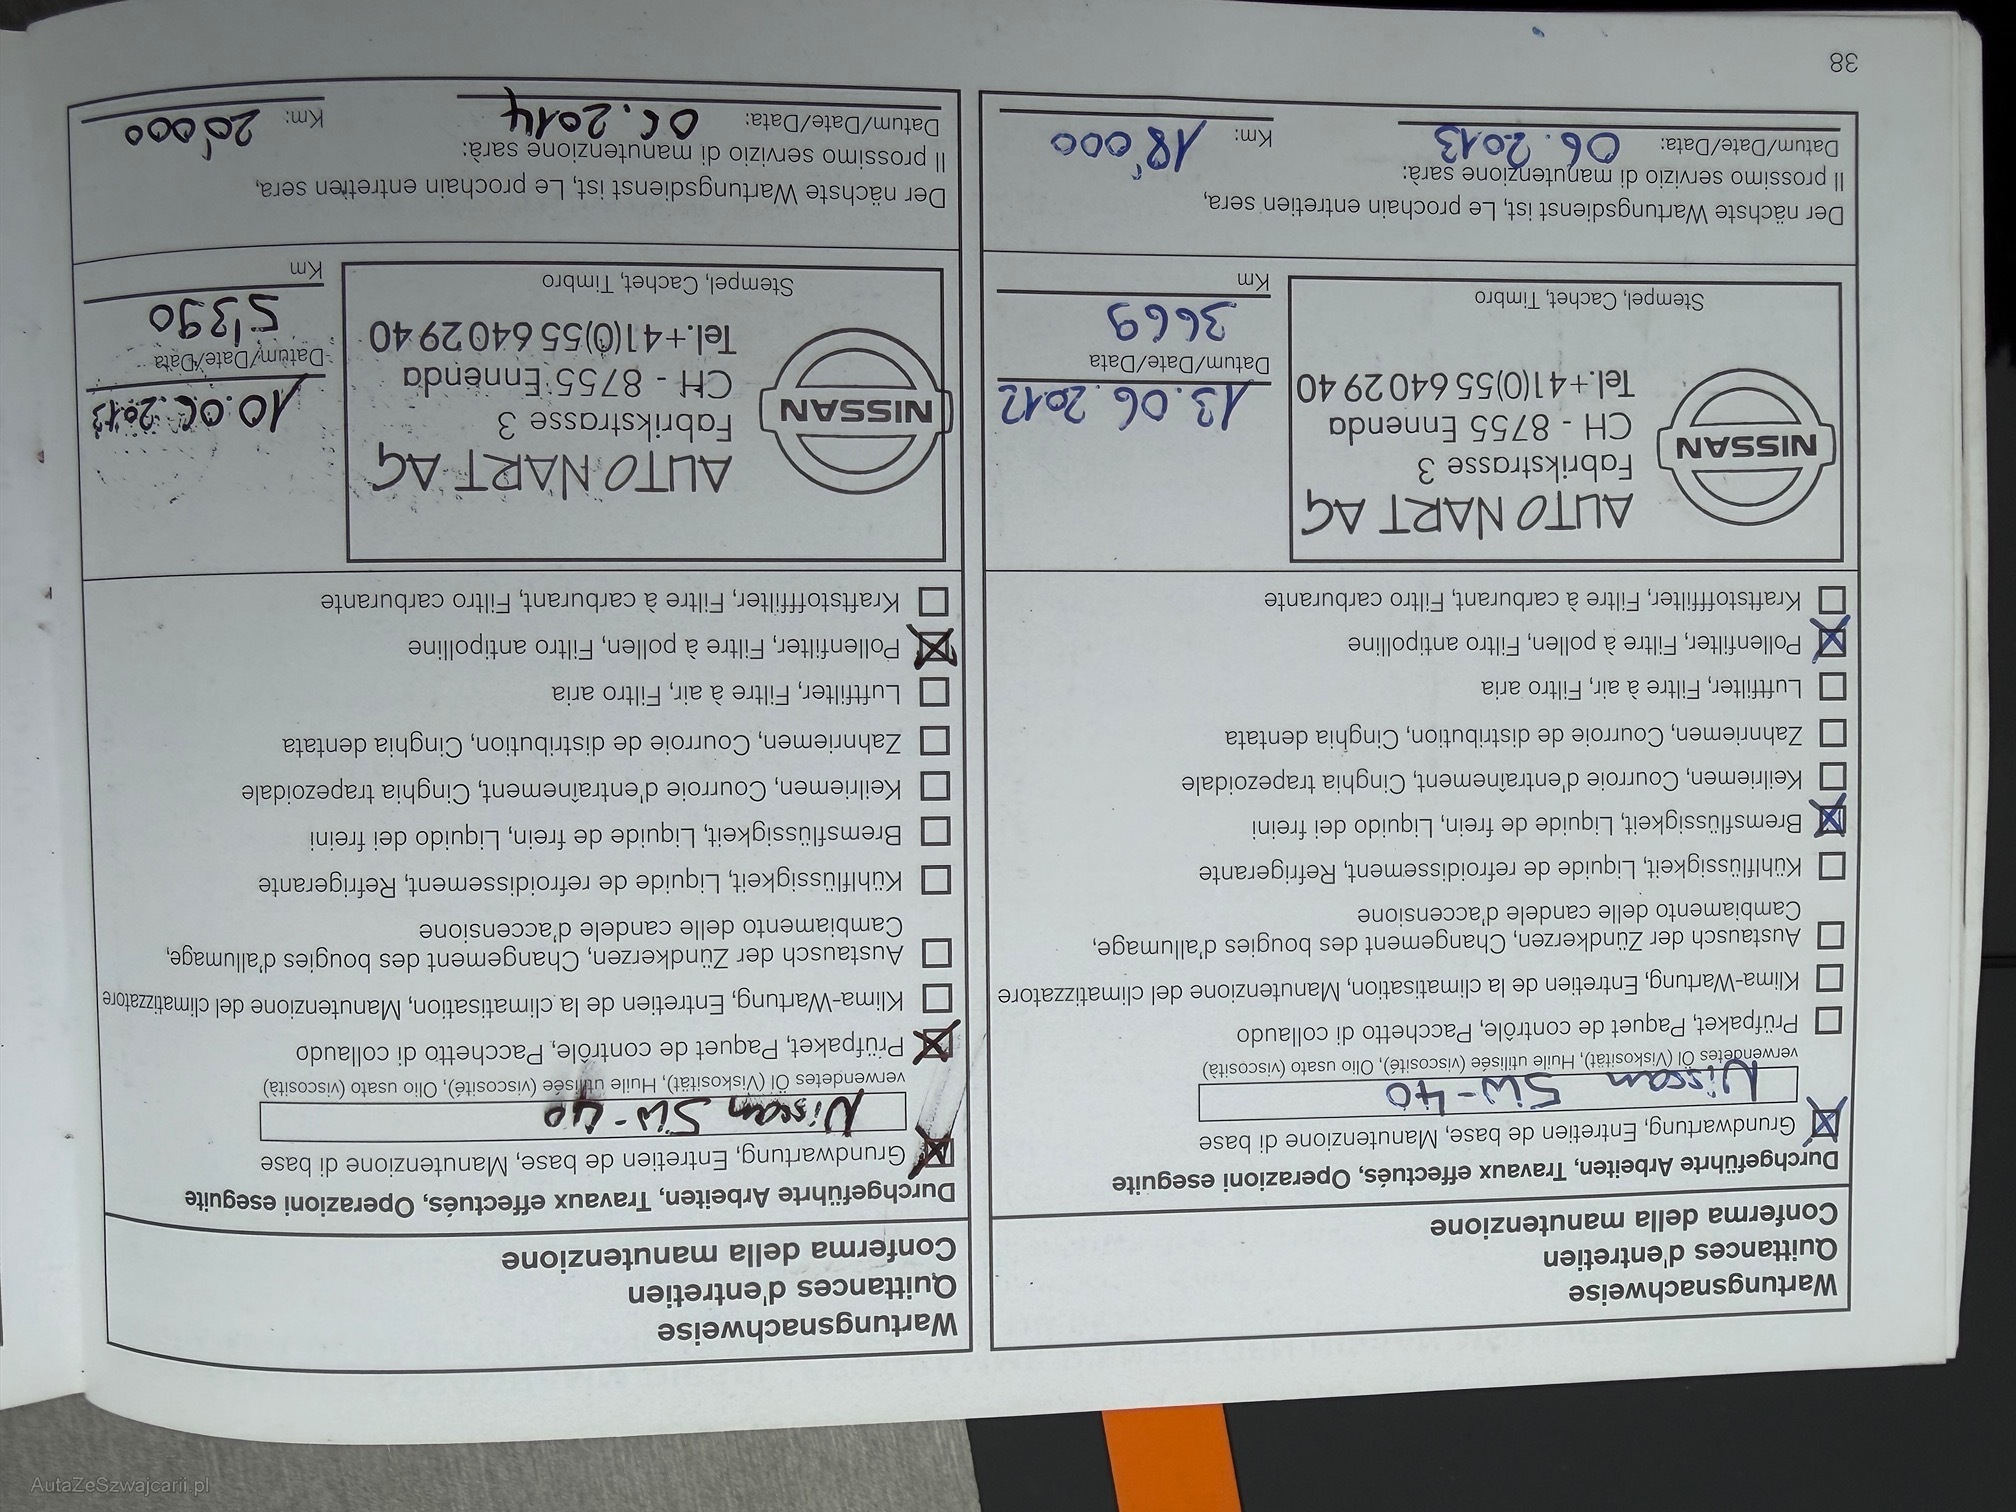 Wartungsnachweise
Quittances d'entretien
Conferma della manutenzione
Durchgeführte Arbeiten, Travaux effectués, Operazioni eseguite
Grundwartung, Entretien de base, Manutenzione di base
Nissan 5W-40
verwendetes Öl (Viskosität), Huile utilisée (viscosité), Olio usato (viscosità)
Prüfpaket, Paquet de contrôle, Pacchetto di collaudo
Klima-Wartung, Entretien de la climatisation, Manutenzione del climatizzatore
Austausch der Zündkerzen, Changement des bougies d'allumage,
Cambiamento delle candele d'accensione
Kühlflüssigkeit, Liquide de refroidissement, Refrigerante
Bremsflüssigkeit, Liquide de frein, Liquido dei freini
Keilriemen, Courroie d'entraînement, Cinghia trapezoidale
Zahnriemen, Courroie de distribution, Cinghia dentata
Luftfilter, Filtre à air, Filtro aria
Pollenfilter, Filtre à pollen, Filtro antipolline
Kraftstofffilter, Filtre à carburant, Filtro carburante
NISSAN
AUTO NART AG
Fabrikstrasse 3
CH - 8755 Ennenda
Tel.+41(0)55 640 29 40
Stempel, Cachet, Timbro
13.06.2012
Datum/Date/Data
3669
Km
Der nächste Wartungsdienst ist, Le prochain entretien sera,
Il prossimo servizio di manutenzione sarà:
Datum/Date/Data: 06.2013 Km: 18'000
38
Wartungsnachweise
Quittances d'entretien
Conferma della manutenzione
Durchgeführte Arbeiten, Travaux effectués, Operazioni eseguite
Grundwartung, Entretien de base, Manutenzione di base
Nissan 5W-40
verwendetes Öl (Viskosität), Huile utilisée (viscosité), Olio usato (viscosità)
Prüfpaket, Paquet de contrôle, Pacchetto di collaudo
Klima-Wartung, Entretien de la climatisation, Manutenzione del climatizzatore
Austausch der Zündkerzen, Changement des bougies d'allumage,
Cambiamento delle candele d'accensione
Kühlflüssigkeit, Liquide de refroidissement, Refrigerante
Bremsflüssigkeit, Liquide de frein, Liquido dei freini
Keilriemen, Courroie d'entraînement, Cinghia trapezoidale
Zahnriemen, Courroie de distribution, Cinghia dentata
Luftfilter, Filtre à air, Filtro aria
Pollenfilter, Filtre à pollen, Filtro antipolline
Kraftstofffilter, Filtre à carburant, Filtro carburante
NISSAN
AUTO NART AG
Fabrikstrasse 3
CH - 8755 Ennenda
Tel.+41(0)55 640 29 40
Stempel, Cachet, Timbro
10.06.2013
Datum/Date/Data
5'390
Km
Der nächste Wartungsdienst ist, Le prochain entretien sera,
Il prossimo servizio di manutenzione sarà:
Datum/Date/Data: 06.2014 Km: 20'000
AutaZeSzwajcarii.pl